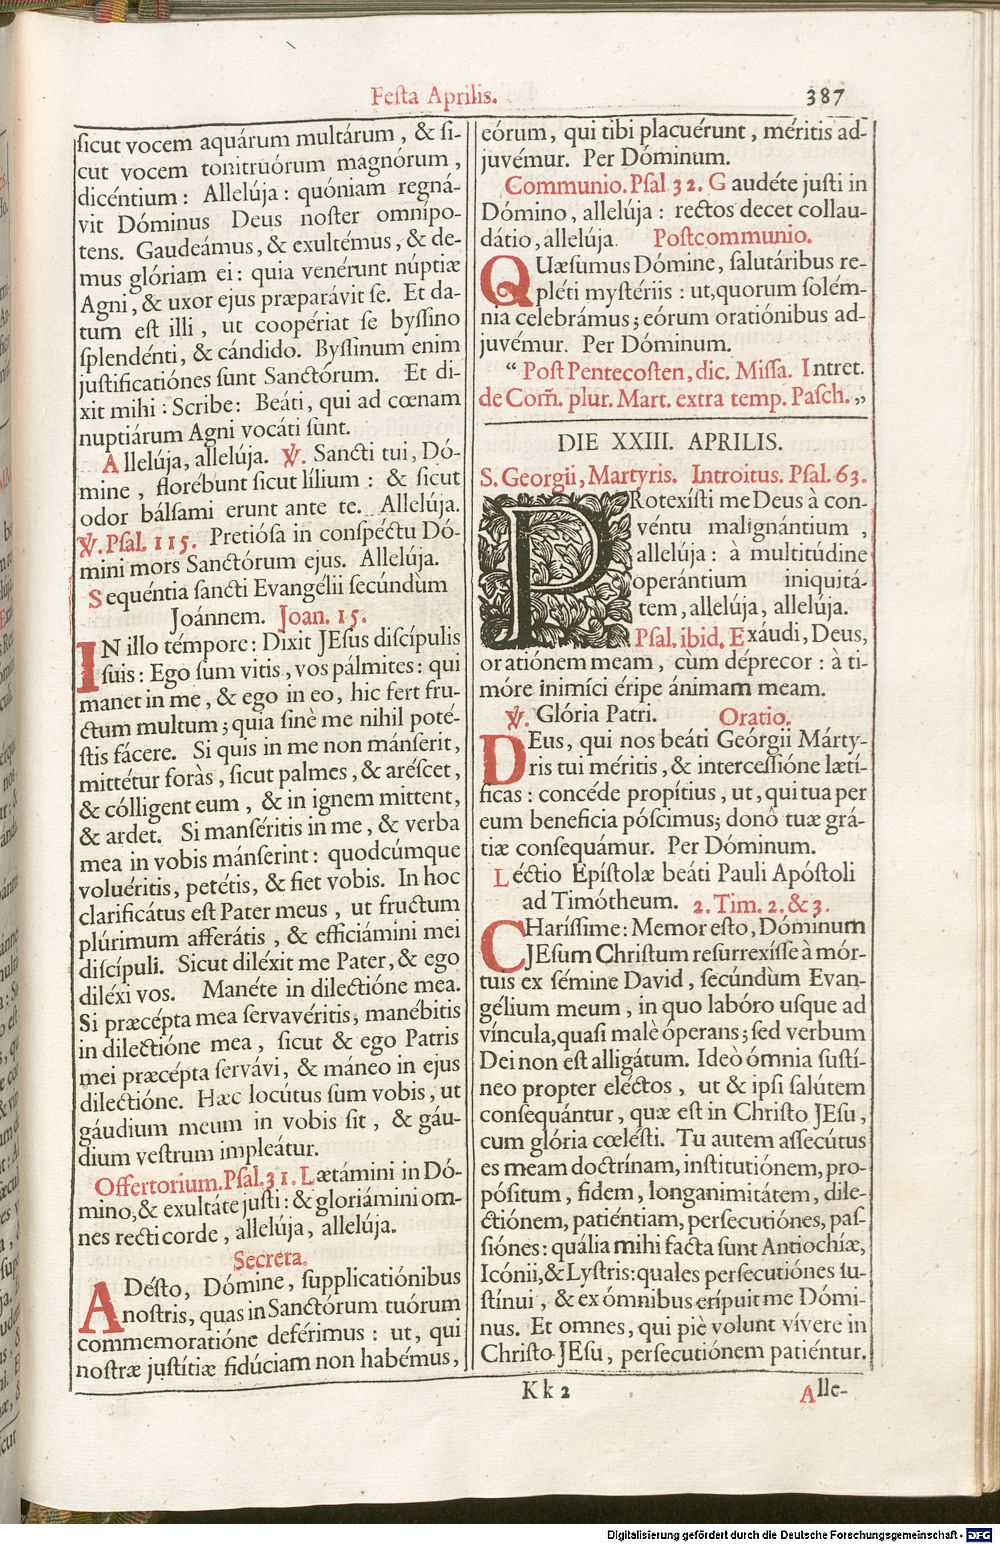 Festa Aprilis. 387
ſicut vocem aquárum multárum, & ſi-
cut vocem tonitruórum magnórum,
dicéntium: Allelúja: quóniam regná-
vit Dóminus Deus noſter omnípo-
tens. Gaudeámus, & exultémus, & de-
mus glóriam ei: quia venérunt núptiæ
Agni, & uxor ejus præparávit ſe. Et da-
tum eſt illi, ut coopériat ſe byſſino
ſplendénti, & cándido. Byſſinum enim
juſtificatiónes ſunt Sanctórum. Et di-
xit mihi: Scribe: Beáti, qui ad cœnam
nuptiárum Agni vocáti ſunt.
Allelúja, allelúja. ℣. Sancti tui, Dó-
mine, florébunt ſicut lílium: & ſicut
odor bálſami erunt ante te. Allelúja.
℣. Pſal. 115. Pretióſa in conſpéctu Dó-
mini mors Sanctórum ejus. Allelúja.
Sequéntia ſancti Evangélii ſecúndùm
Joánnem. Joan. 15.
IN illo témpore: Dixit JEſus diſcípulis
ſuis: Ego ſum vitis, vos pálmites: qui
manet in me, & ego in eo, hic fert fru-
ctum multum; quia ſinè me nihil poté-
ſtis fácere. Si quis in me non mánſerit,
mittétur foràs, ſicut palmes, & aréſcet,
& cólligent eum, & in ignem mittent,
& ardet. Si manſéritis in me, & verba
mea in vobis mánſerint: quodcúmque
voluéritis, petétis, & fiet vobis. In hoc
clarificátus eſt Pater meus, ut fructum
plúrimum afferátis, & efficiámini mei
diſcípuli. Sicut diléxit me Pater, & ego
diléxi vos. Manéte in dilectióne mea.
Si præcépta mea ſervavéritis, manébitis
in dilectióne mea, ſicut & ego Patris
mei præcépta ſervávi, & máneo in ejus
dilectióne. Hæc locútus ſum vobis, ut
gáudium meum in vobis ſit, & gáu-
dium veſtrum impleátur.
Offertorium. Pſal. 31. Lætámini in Dó-
mino, & exultáte juſti: & gloriámini om-
nes recti corde, allelúja, allelúja.
Secreta.
ADéſto, Dómine, ſupplicatiónibus
noſtris, quas in Sanctórum tuórum
commemoratióne deférimus: ut, qui
noſtræ juſtítiæ fidúciam non habémus,
eórum, qui tibi placuérunt, méritis ad-
juvémur. Per Dóminum.
Communio. Pſal 32. Gaudéte juſti in
Dómino, allelúja: rectos decet collau-
dátio, allelúja. Poſtcommunio.
QUæſumus Dómine, ſalutáribus re-
pléti myſtériis: ut, quorum ſolém-
nia celebrámus; eórum oratiónibus ad-
juvémur. Per Dóminum.
“ Poſt Pentecoſten, dic. Miſſa. Intret.
de Com̃. plur. Mart. extra temp. Paſch. „
DIE XXIII. APRILIS.
S. Georgii, Martyris. Introitus. Pſal. 63.
PRotexíſti me Deus à con-
véntu malignántium,
allelúja: à multitúdine
operántium iniquitá-
tem, allelúja, allelúja.
Pſal. ibid. Exáudi, Deus,
oratiónem meam, cùm déprecor: à ti-
móre inimíci éripe ánimam meam.
℣. Glória Patri. Oratio.
DEus, qui nos beáti Geórgii Márty-
ris tui méritis, & interceſſióne lætí-
ficas: concéde propítius, ut, qui tua per
eum beneficia póſcimus; donô tuæ grá-
tiæ conſequámur. Per Dóminum.
Léctio Epíſtolæ beáti Pauli Apóſtoli
ad Timótheum. 2. Tim. 2. & 3.
CHaríſſime: Memor eſto, Dóminum
JEſum Chriſtum reſurrexíſſe à mór-
tuis ex ſémine David, ſecúndùm Evan-
gélium meum, in quo labóro uſque ad
víncula, quaſi malè óperans; ſed verbum
Dei non eſt alligátum. Ideò ómnia ſuſtí-
neo propter eléctos, ut & ipſi ſalútem
conſequántur, quæ eſt in Chriſto JEſu,
cum glória cœléſti. Tu autem aſſecútus
es meam doctrínam, inſtitutiónem, pro-
póſitum, fidem, longanimitátem, dile-
ctiónem, patiéntiam, perſecutiónes, paſ-
ſiónes: quália mihi facta ſunt Antiochíæ,
Icónii, & Lyſtris: quales perſecutiónes ſu-
ſtínui, & ex ómnibus erípuit me Dómi-
nus. Et omnes, qui piè volunt vívere in
Chriſto JEſu, perſecutiónem patiéntur.
Kk 2 Alle-
Digitalisierung gefördert durch die Deutsche Forschungsgemeinschaft - DFG